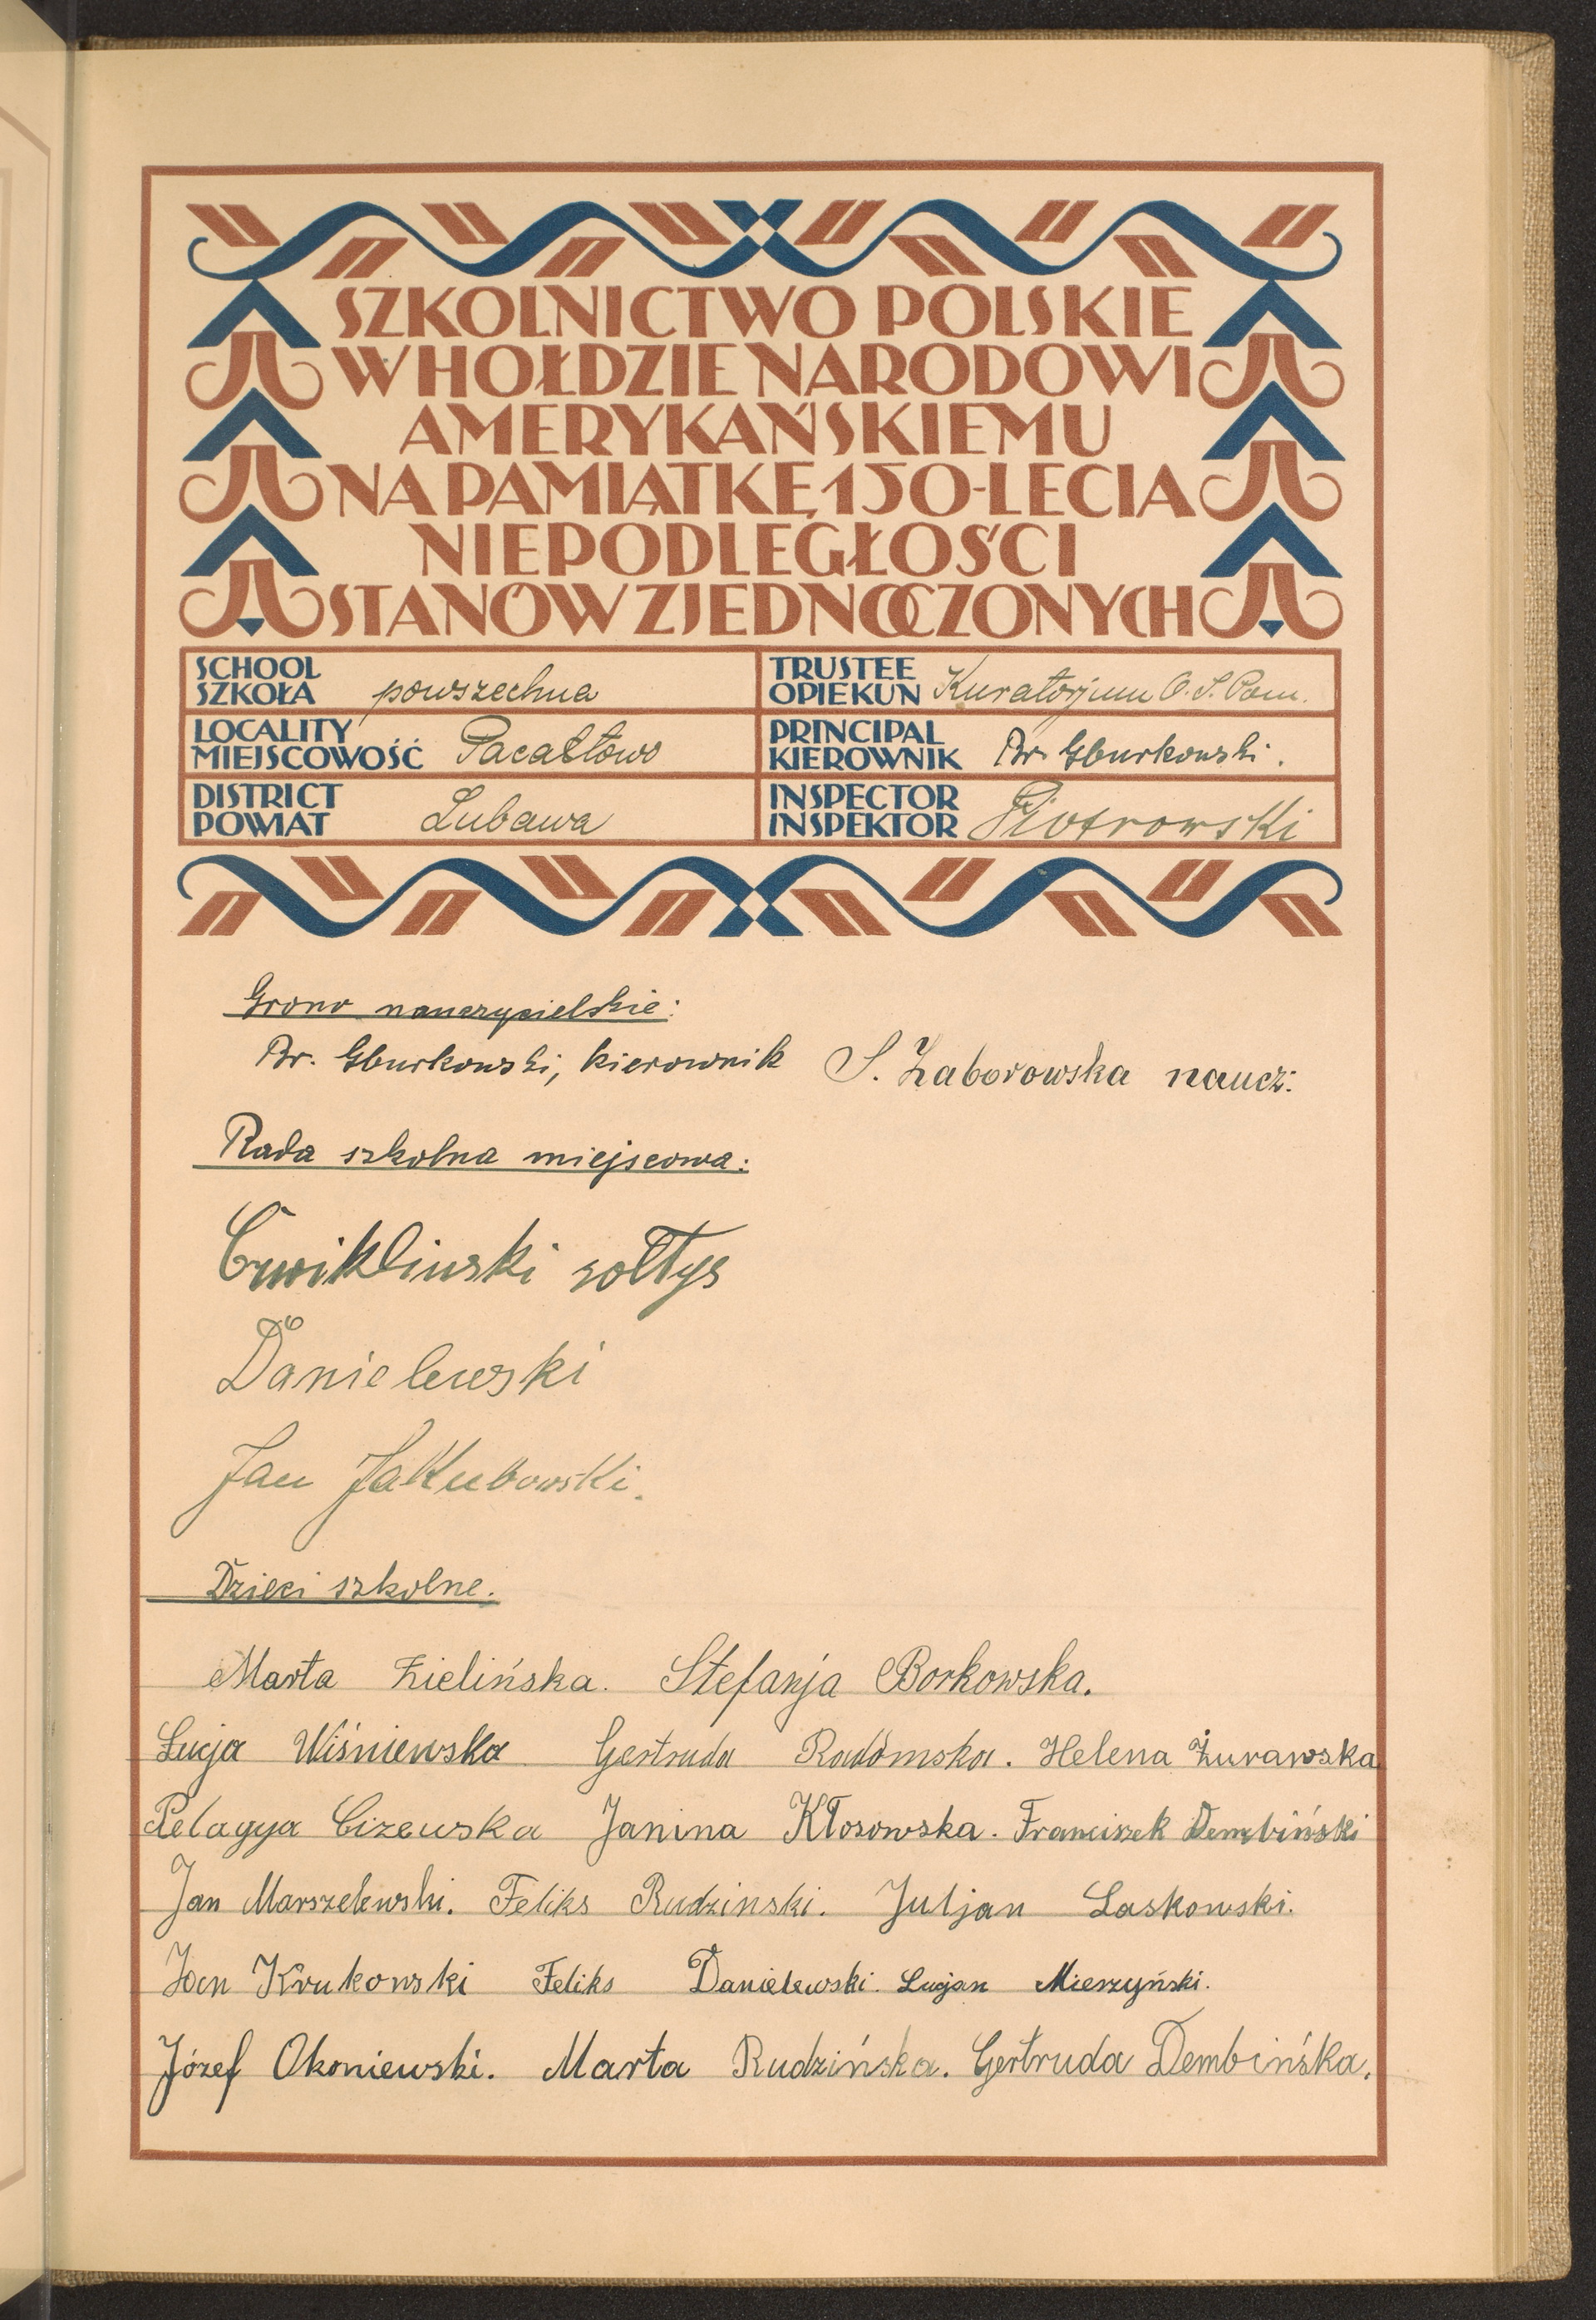 SZKOLNICTWO POLSKIE
W HOŁDZIE NARODOWI
AMERYKAŃSKIEMU
NA PAMIĄTKĘ 150-LECIA
NIEPODLEGŁOŚCI
STANÓW ZJEDNOCZONYCH
SCHOOL
SZKOŁA powszechna
TRUSTEE
OPIEKUN Kuratorjum O.S. Pom.
LOCALITY
MIEJSCOWOŚĆ Pacałtowo
PRINCIPAL
KIEROWNIK Br. Gburkowski.
DISTRICT
POWIAT Lubawa
INSPECTOR
INSPEKTOR Piotrowski
Grono nauczycielskie:
Br. Gburkowski, kierownik S. Zaborowska naucz:
Rada szkolna miejscowa:
Cwiklinski sołtys
Danielewski
Jan Jakubowski.
Dzieci szkolne.
Marta Zielińska. Stefanja Borkowska.
Łucja Wiśniewska Gertruda Radomska. Helena Żurawska
Pelagya Cizewska Janina Kłosowska. Franciszek Dembiński
Jan Marszelewski. Feliks Rudzinski. Juljan Laskowski.
Jan Krukowski Feliks Danielewski. Lucjan Mierzyński.
Józef Okoniewski. Marta Rudzińska. Gertruda Dembińska.